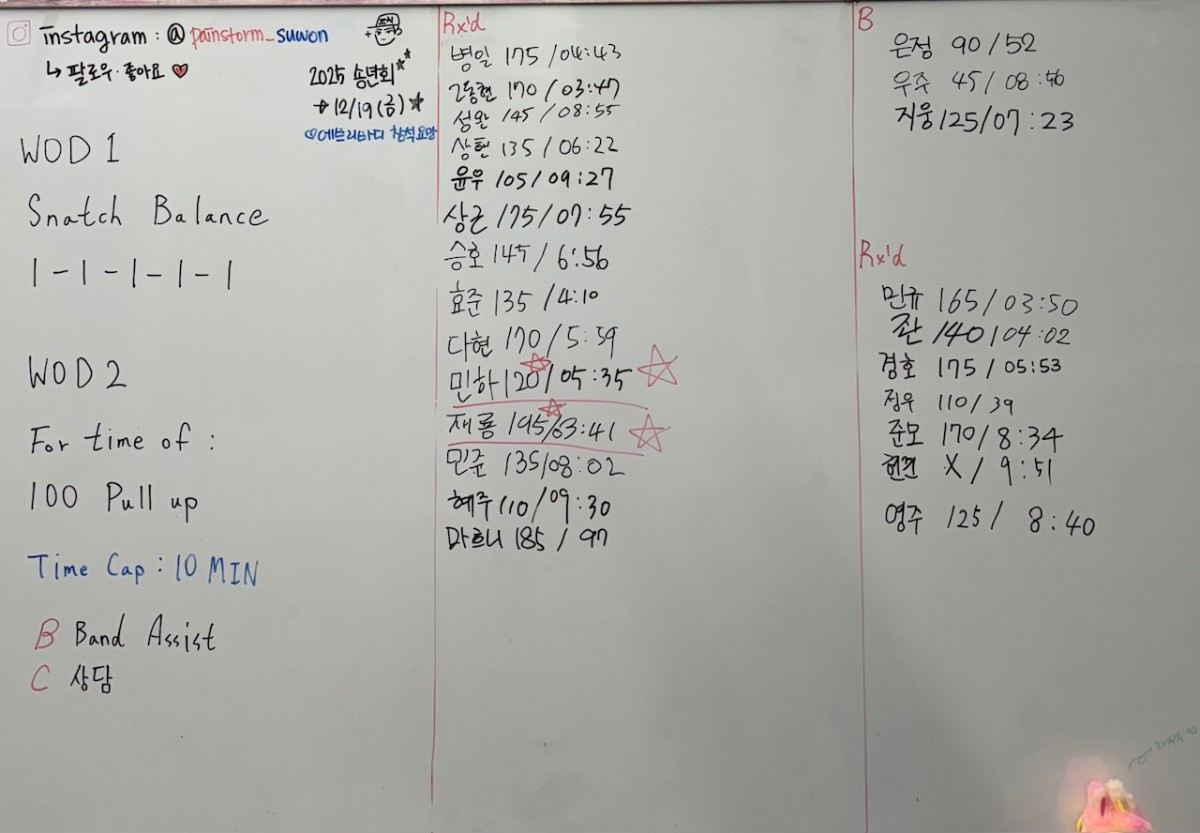 instagram : @ painstorm_suwon
↳ 팔로우·좋아요 ♥
2025 송년회
12/19 (금)
♡에브리바디 참석요망
WOD 1
Snatch Balance
1 - 1 - 1 - 1 - 1
WOD 2
For time of :
100 Pull up
Time Cap : 10 MIN
B Band Assist
C 상담
Rx'd
병일 175 / 04:43
고동현 170 / 03:47
성완 145 / 08:55
상현 135 / 06:22
윤우 105 / 09:27
상근 175 / 07:55
승호 145 / 6:56
효준 135 / 4:10
다현 170 / 5:59
민하 120 / 05:35
재룡 195 / 03:41
민준 135/08:02
혜주 110 / 09:30
마르니 185 / 97
B
은정 90 / 52
우주 45 / 08:56
지웅 125/07:23
Rx'd
민규 165 / 03:50
좐 140 / 04:02
경호 175 / 05:53
정우 110 / 39
준모 170 / 8:34
X / 9:51
영주 125 / 8:40